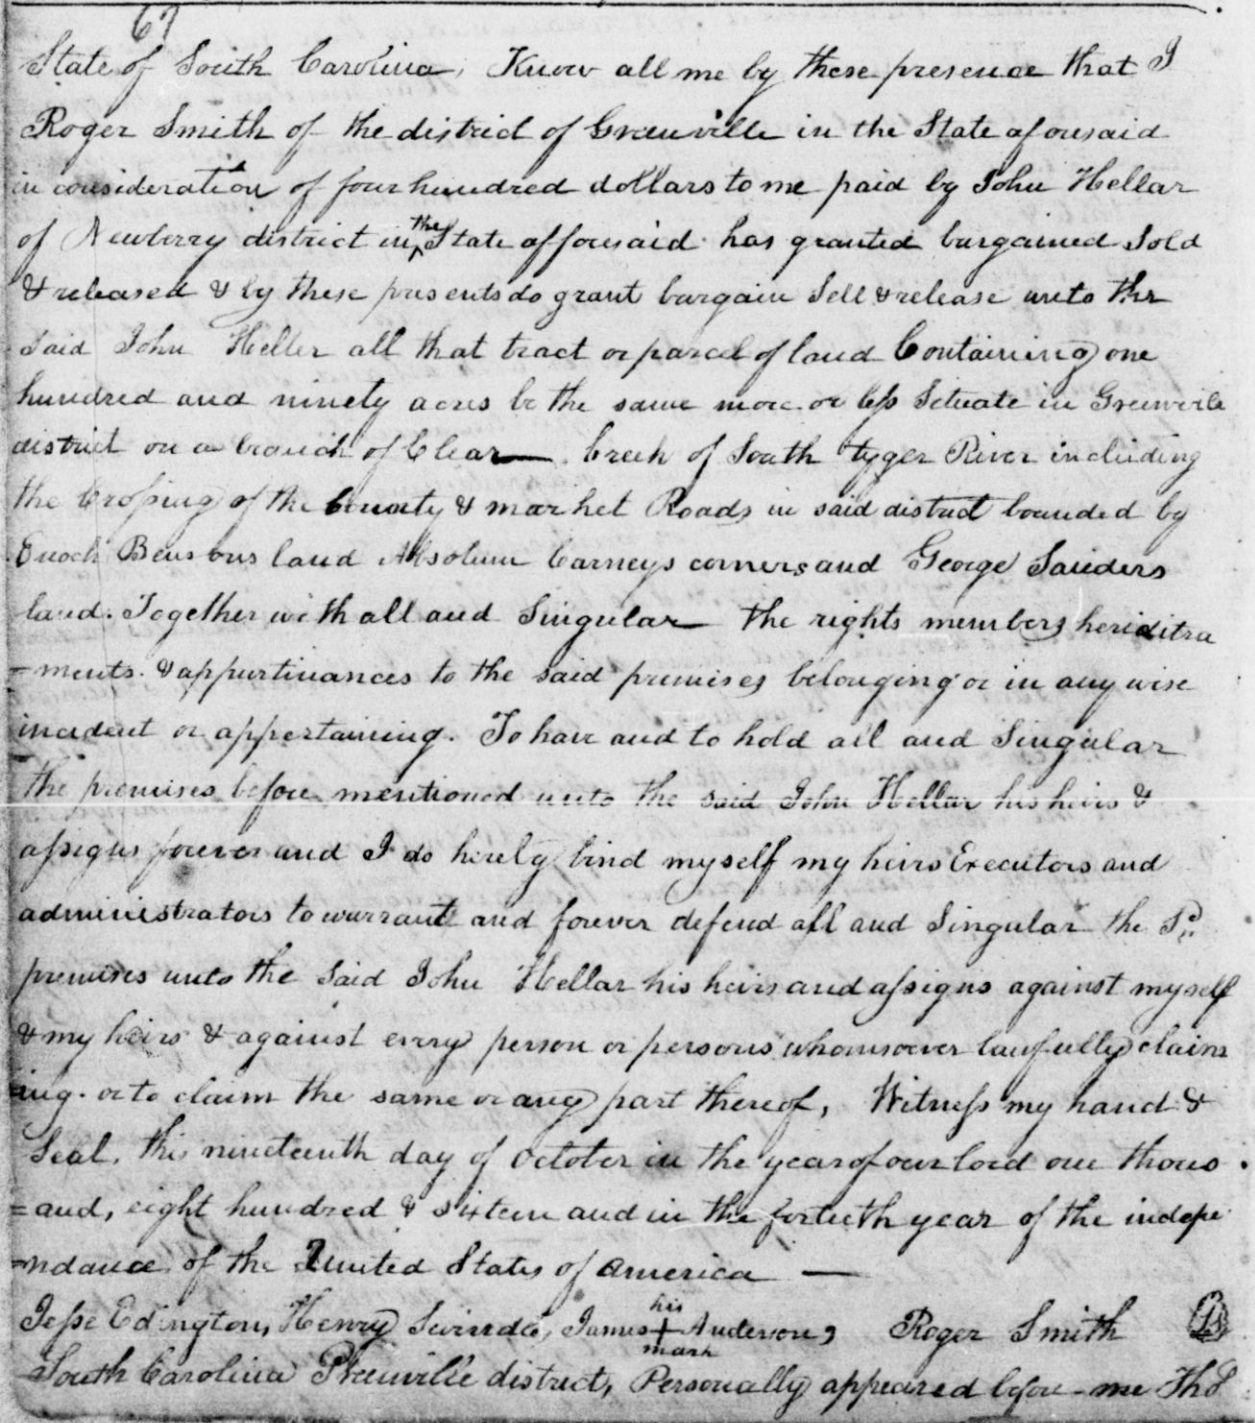 67
State of South Carolina, Know all me by these presence that I
Roger Smith of the district of Greenville in the State aforesaid
in consideration of four hundred dollars to me paid by John Hellar
of Newberry district in the State afforesaid has granted bargained Sold
& released & by these presents do grant bargain Sell & release unto the
Said John Heller all that tract or parcel of land Containing one
hundred and ninety acres be the same more or less Setuate in Greenvile
district on a branch of Clear Creek of South tyger River including
the Crossing of the County & market Roads in said district bounded by
Enoch Bensons land Absolum Carneys corners and George Sauders
land. Together with all and Singular the rights members heriditra
-ments & appurtinances to the said premises belonging or in any wise
incident or appertaining. To have and to hold all and Singular
the premises before mentioned unto the said John Hellar his heirs &
assigns forever and I do hereby bind myself my heirs Executors and
administrators to warrant and forever defend all and Singular the Sd
premises unto the Said John Hellar his heirs and assigns against myself
& my heirs & against every person or persons whomsoever lawfully claim
ing or to claim the same or any part thereof, Witness my hand &
Seal. this nineteenth day of October in the year of our lord one thous
=and, eight hundred & sixteen and in the fortieth year of the indepe
-ndance of the United States of America —
Jesse Edington, Henry Swindle, James his + mark Anderson, Roger Smith LS
South Carolina Greenville district, Personally appeared before me Th S